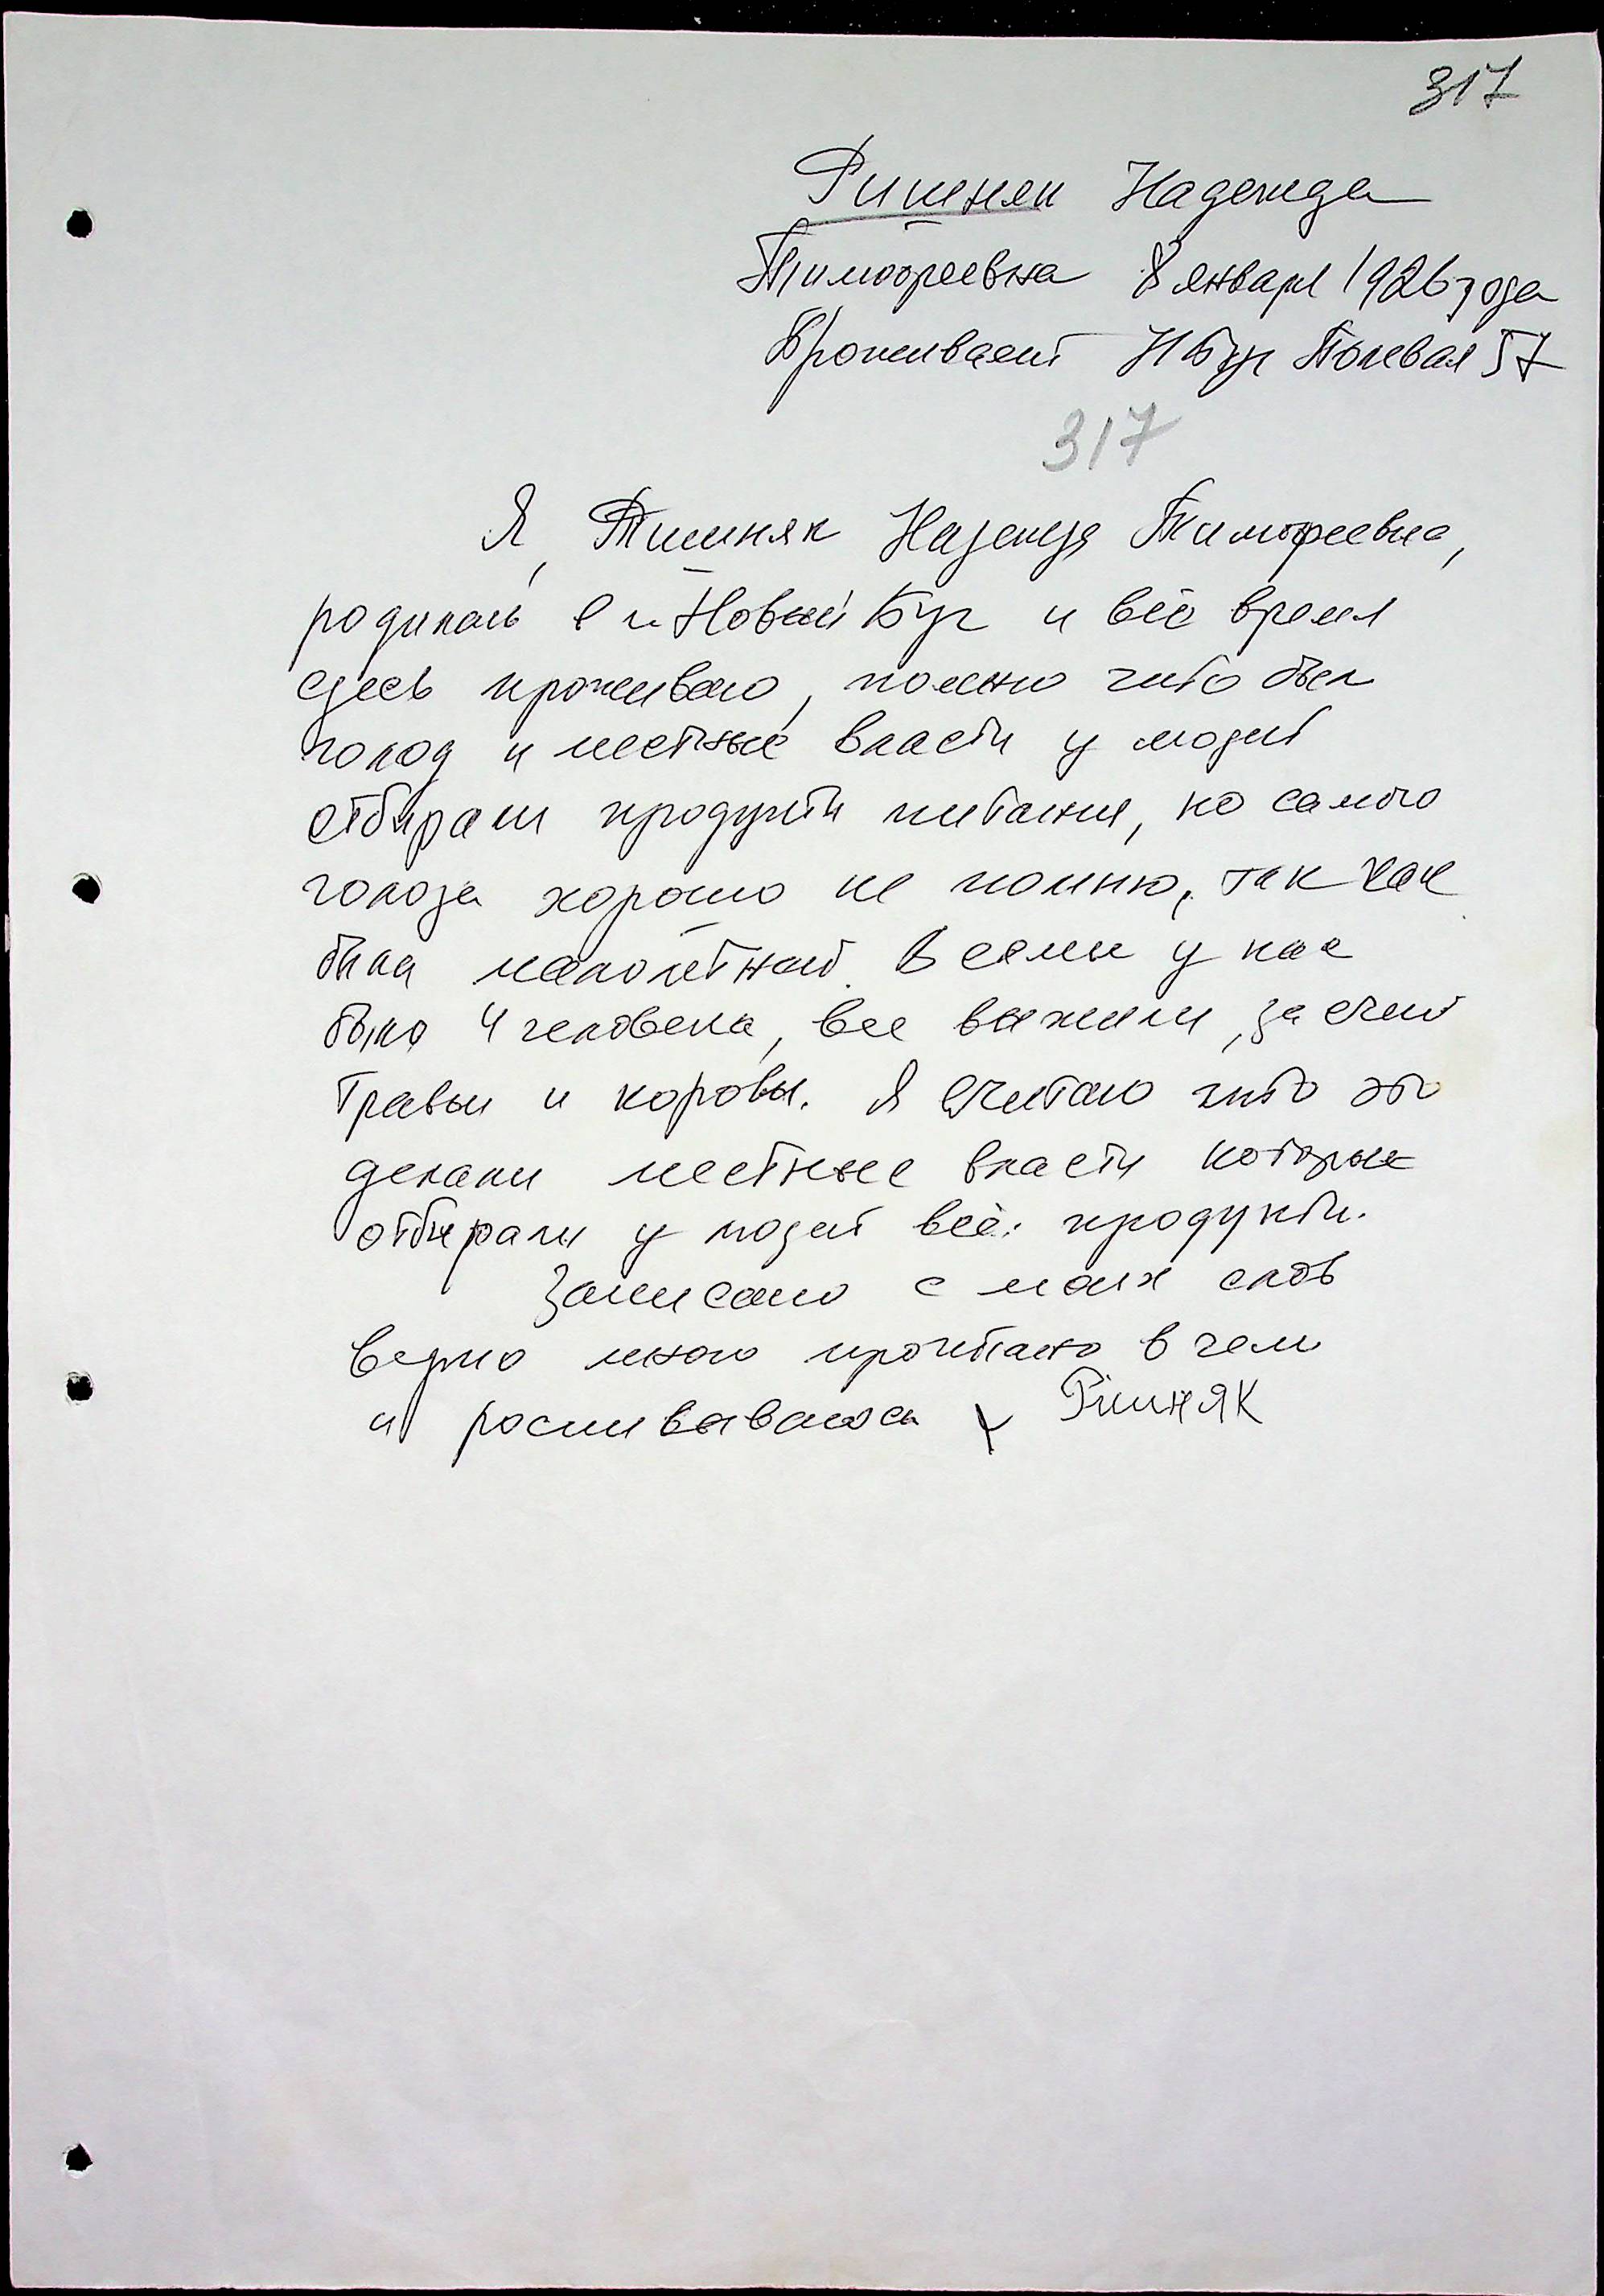 317
Ришняк Надежда
Тимофеевна 8 января 1926 года
Проживает Н Буг Полевая 57
317
Я, Ришняк Надежда Тимофеевна,
родилась в г. Новый Буг и всё время
сдесь проживаю, помню что был
голод и местные власти у людей
отбирали продукти питания, но самого
голода хорошо не помню, так как
была малолетней. В семьи у нас
было 4 человека, все выжили, за счет
травы и коровы. Я считаю что это
делали местные власти которые
отбирали у людей всё: продукти.
Записано с моих слов
верно мною прочитано в чем
и росписываюсь Рішняк